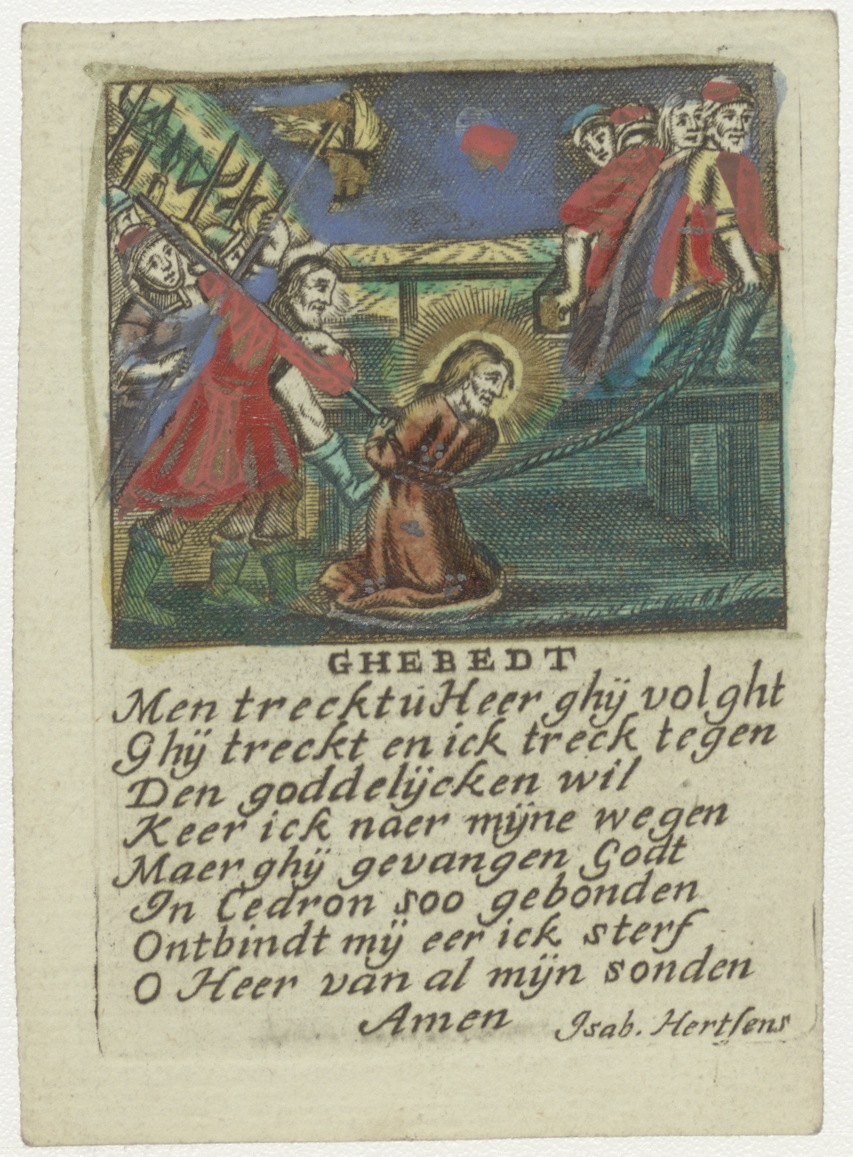 GHEBEDT
Men treckt ú Heer ghÿ volght
Ghÿ treckt en ick treck tegen
Den goddelÿcken wil
Keer ick naer mÿne wegen
Maer ghÿ gevangen Godt
In Cedron soo gebonden
Ontbindt mÿ eer ick sterf
O Heer van al mÿn sonden
Amen Isab. Hertſens